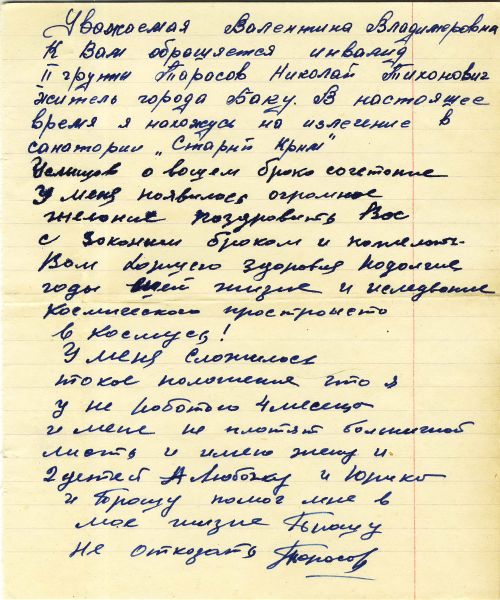 Уважаемая Валентина Владимеровна
К Вам обращяется инвалид
II групы Тарасов Николай Тихонович
житель города Баку. В настоящее
время я нахожусь на излечение в
санатории „Старый Крим"
Услищов о вашем брако сочетание
У меня появилось огромное
желание поздровить Вас
с законым браком и пожелать
Вам хорошего здоровия на долгие
годы жизне и иследвание
космического простронсто
в Космусе!
У меня сложилось
токое положение что я
уже не работаю 4 месяца
и мене не плотят больничной
листь и имею жену и
2 детей Любочку и Юрика
и Прошу помоч мне в
мое жизне Прошу
не отказать Тарасов